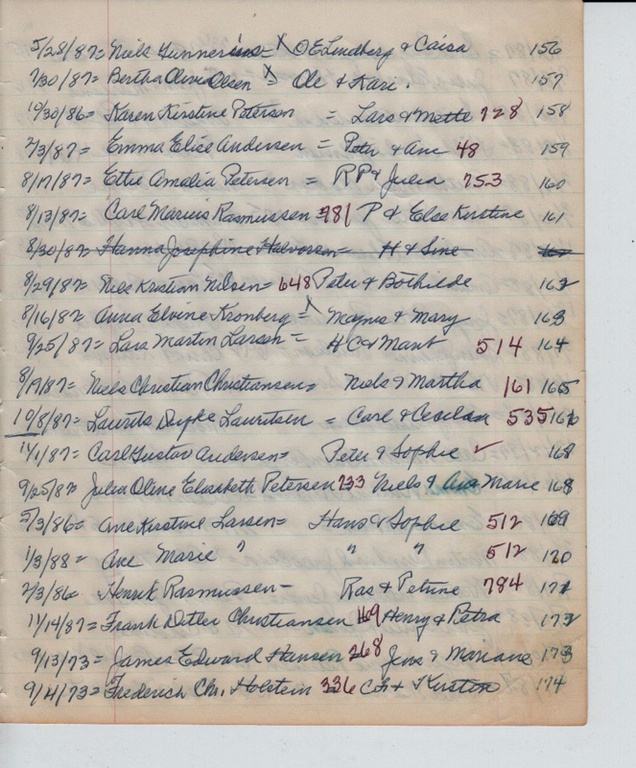 5/28/87= Niels Gunnerius= X O E Lindberg & Caisa 156
7/30/87= Bertha Olivia Olsen X = Ole & Kari. 157
10/30/86= Karen Kirstine Peterson = Lars & Mette 728 158
2/3/87= Emma Elise Andersen = Peter & Ane 48 159
8/17/87= Ethe Amalia Petersen = R P & Julia 753 160
8/13/87= Carl Marius Rasmussen 781 P & Else Kirstine 161
8/30/87= Hanna Josephine Halvorsen= H & Sine
8/29/87= Niels Kristian Nilsen= 648 Peter & Bothilde 162
8/16/87= Anna Elvine Kronberg = X Magnus & Mary 163
9/25/87= Lars Martin Larsen = H C & Mant 514 164
8/19/87= Niels Christian Christiansen= Niels & Martha 161 165
10/8/87= Laurits Lauritsen = Carl & 535 166
11/1/87= Carl Gustav Andersen= Peter & Sophie ✓ 168
9/25/87= Julia Oline Elisabeth Petersen 733 Niels & Ana Marie 168
5/3/86= Ane Kirstine Larsen= Hans & Sophie 512 169
1/3/88= Ane Marie " " " 512 170
2/3/86= Henrik Rasmussen- Ras & Petrine 784 171
11/14/87= Frank Ditler Christiansen 169 Henry & Petra 172
9/13/73= James Edward Hansen 268 Jens & Mariane 173
9/4/73= Frederich Chr. Holstein 336 Ch & Kirsten 174